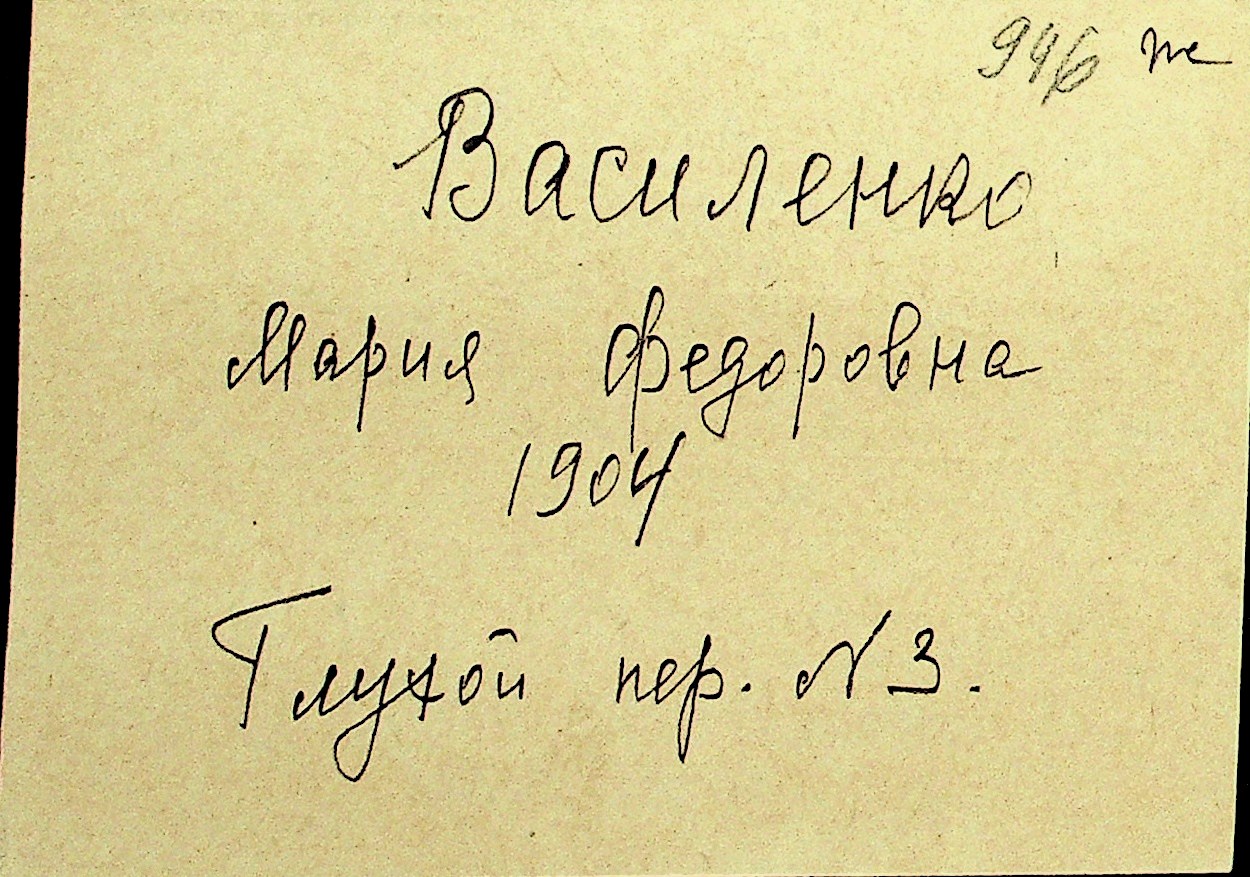 946 же
Василенко
Мария Федоровна
1904
Глухой пер. N 3.